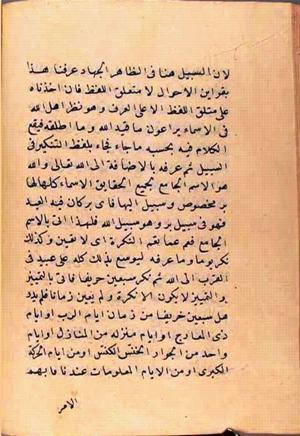 لان السبيل هنا فى الظاهر الجهاد عرفنا هذا
بقراين الاحوال لا متعلق اللفظ فان اخذناه
على متلق اللفظ الاعلى العرف وهو نظر اهل الله
فى الاسماء يراعون ما قيد الله وما اطلقه فيقع
الكلام فيه بحسبه ما جاء فجاء بلفظ التنكير فى
السبيل ثم عرفه بالاضافة الى الله تعالى والله
هو الاسم الجامع لجميع الحقايق الاسماء كلها لها
بر مخصوص وسبيل اليها فاى بر كان فيه العبد
فهو فى سبيل بر وهو سبيل الله فلهذا اتى بالاسم
الجامع فعم كما تعم النكرة اى لا تعين وكذلك
نكر يوما وما عرفه ليوسع بذلك كله على عبيد فى
القرب الى الله ثم نكر سبعين خريفا فاتى بالتمييز
والتمييز لا يكون الا نكرة ولم يعين زمانا فلم يدر
هل سبعين خريفا من زمان ايام الرب او ايام
ذى المعارج او ايام منزله من المنازل او ايام
واحد من الجوار الخنس الكنس او من ايام الحركة
الكبرى او من الايام المعلومات عندنا فابهم
الامر